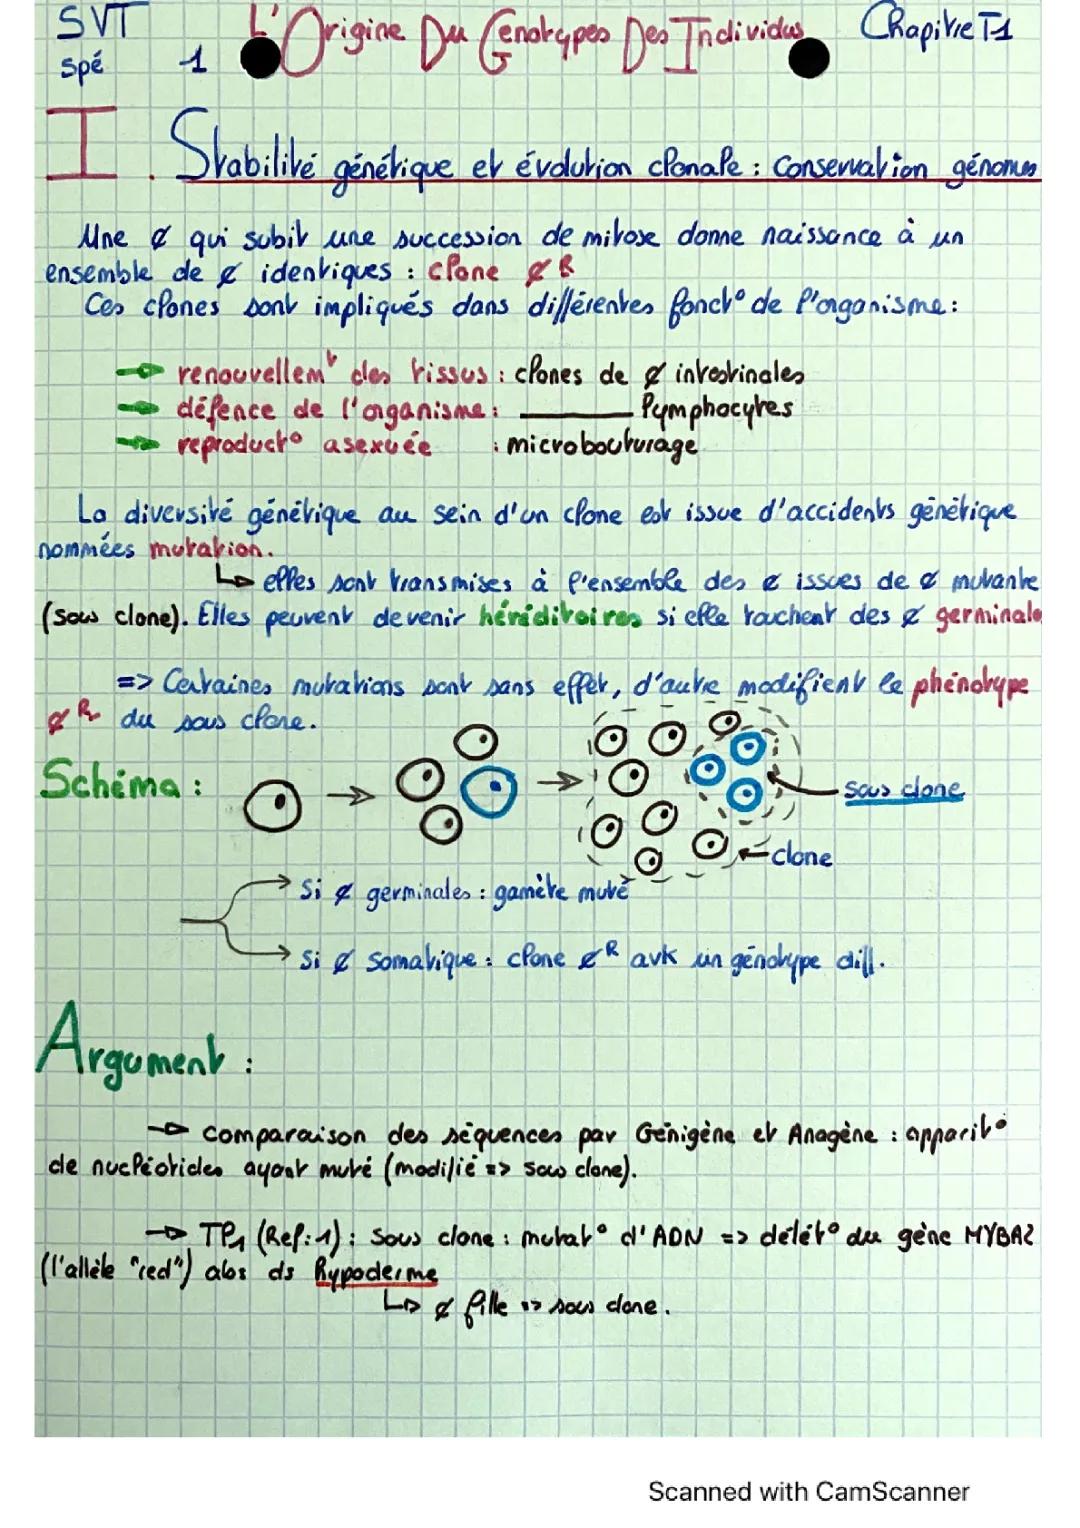 SVT L'Origine Du Genotypes Des Individus Chapitre T1
spé 1
I. Stabilité génétique et évolution clonale : Conservation génomes
Une ¢ qui subit une succession de mitose donne naissance à un
ensemble de ¢ identiques : clone ¢R
Ces clones sont impliqués dans différentes fonct° de l'organisme :
renouvellemt des tissus : clones de ¢ intestinales
défence de l'organisme : ——— lymphocytes
reproduct° asexuée : microbouturage
La diversité génétique au sein d'un clone est issue d'accidents génétique
nommées mutation.
↳ elles sont transmises à l'ensemble des ¢ issues de ¢ mutante
(sous clone). Elles peuvent devenir héréditaires si elle touchent des ¢ germinale
=> Certaines mutations sont sans effet, d'autre modifient le phénotype
¢R du sous clone.
Schéma :
sous clone
clone
Si ¢ germinales : gamète muté
Si ¢ somatique : clone ¢R avk un génotype diff.
Argument :
→ comparaison des séquences par Génigène et Anagène : apparit°
de nucléotides ayant muté (modifié => sous clone).
→ TP1 (Ref: 1) : Sous clone : mutat° d'ADN => délét° du gène MYBA2
(l'allèle "red") abs ds hypoderme
↳ ¢ fille => sous clone.
Scanned with CamScanner